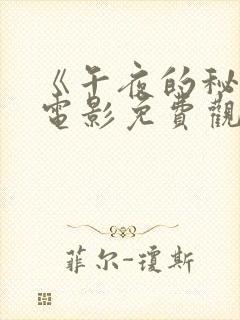 《午夜的秘
電影免費觀
菲尔-琼斯